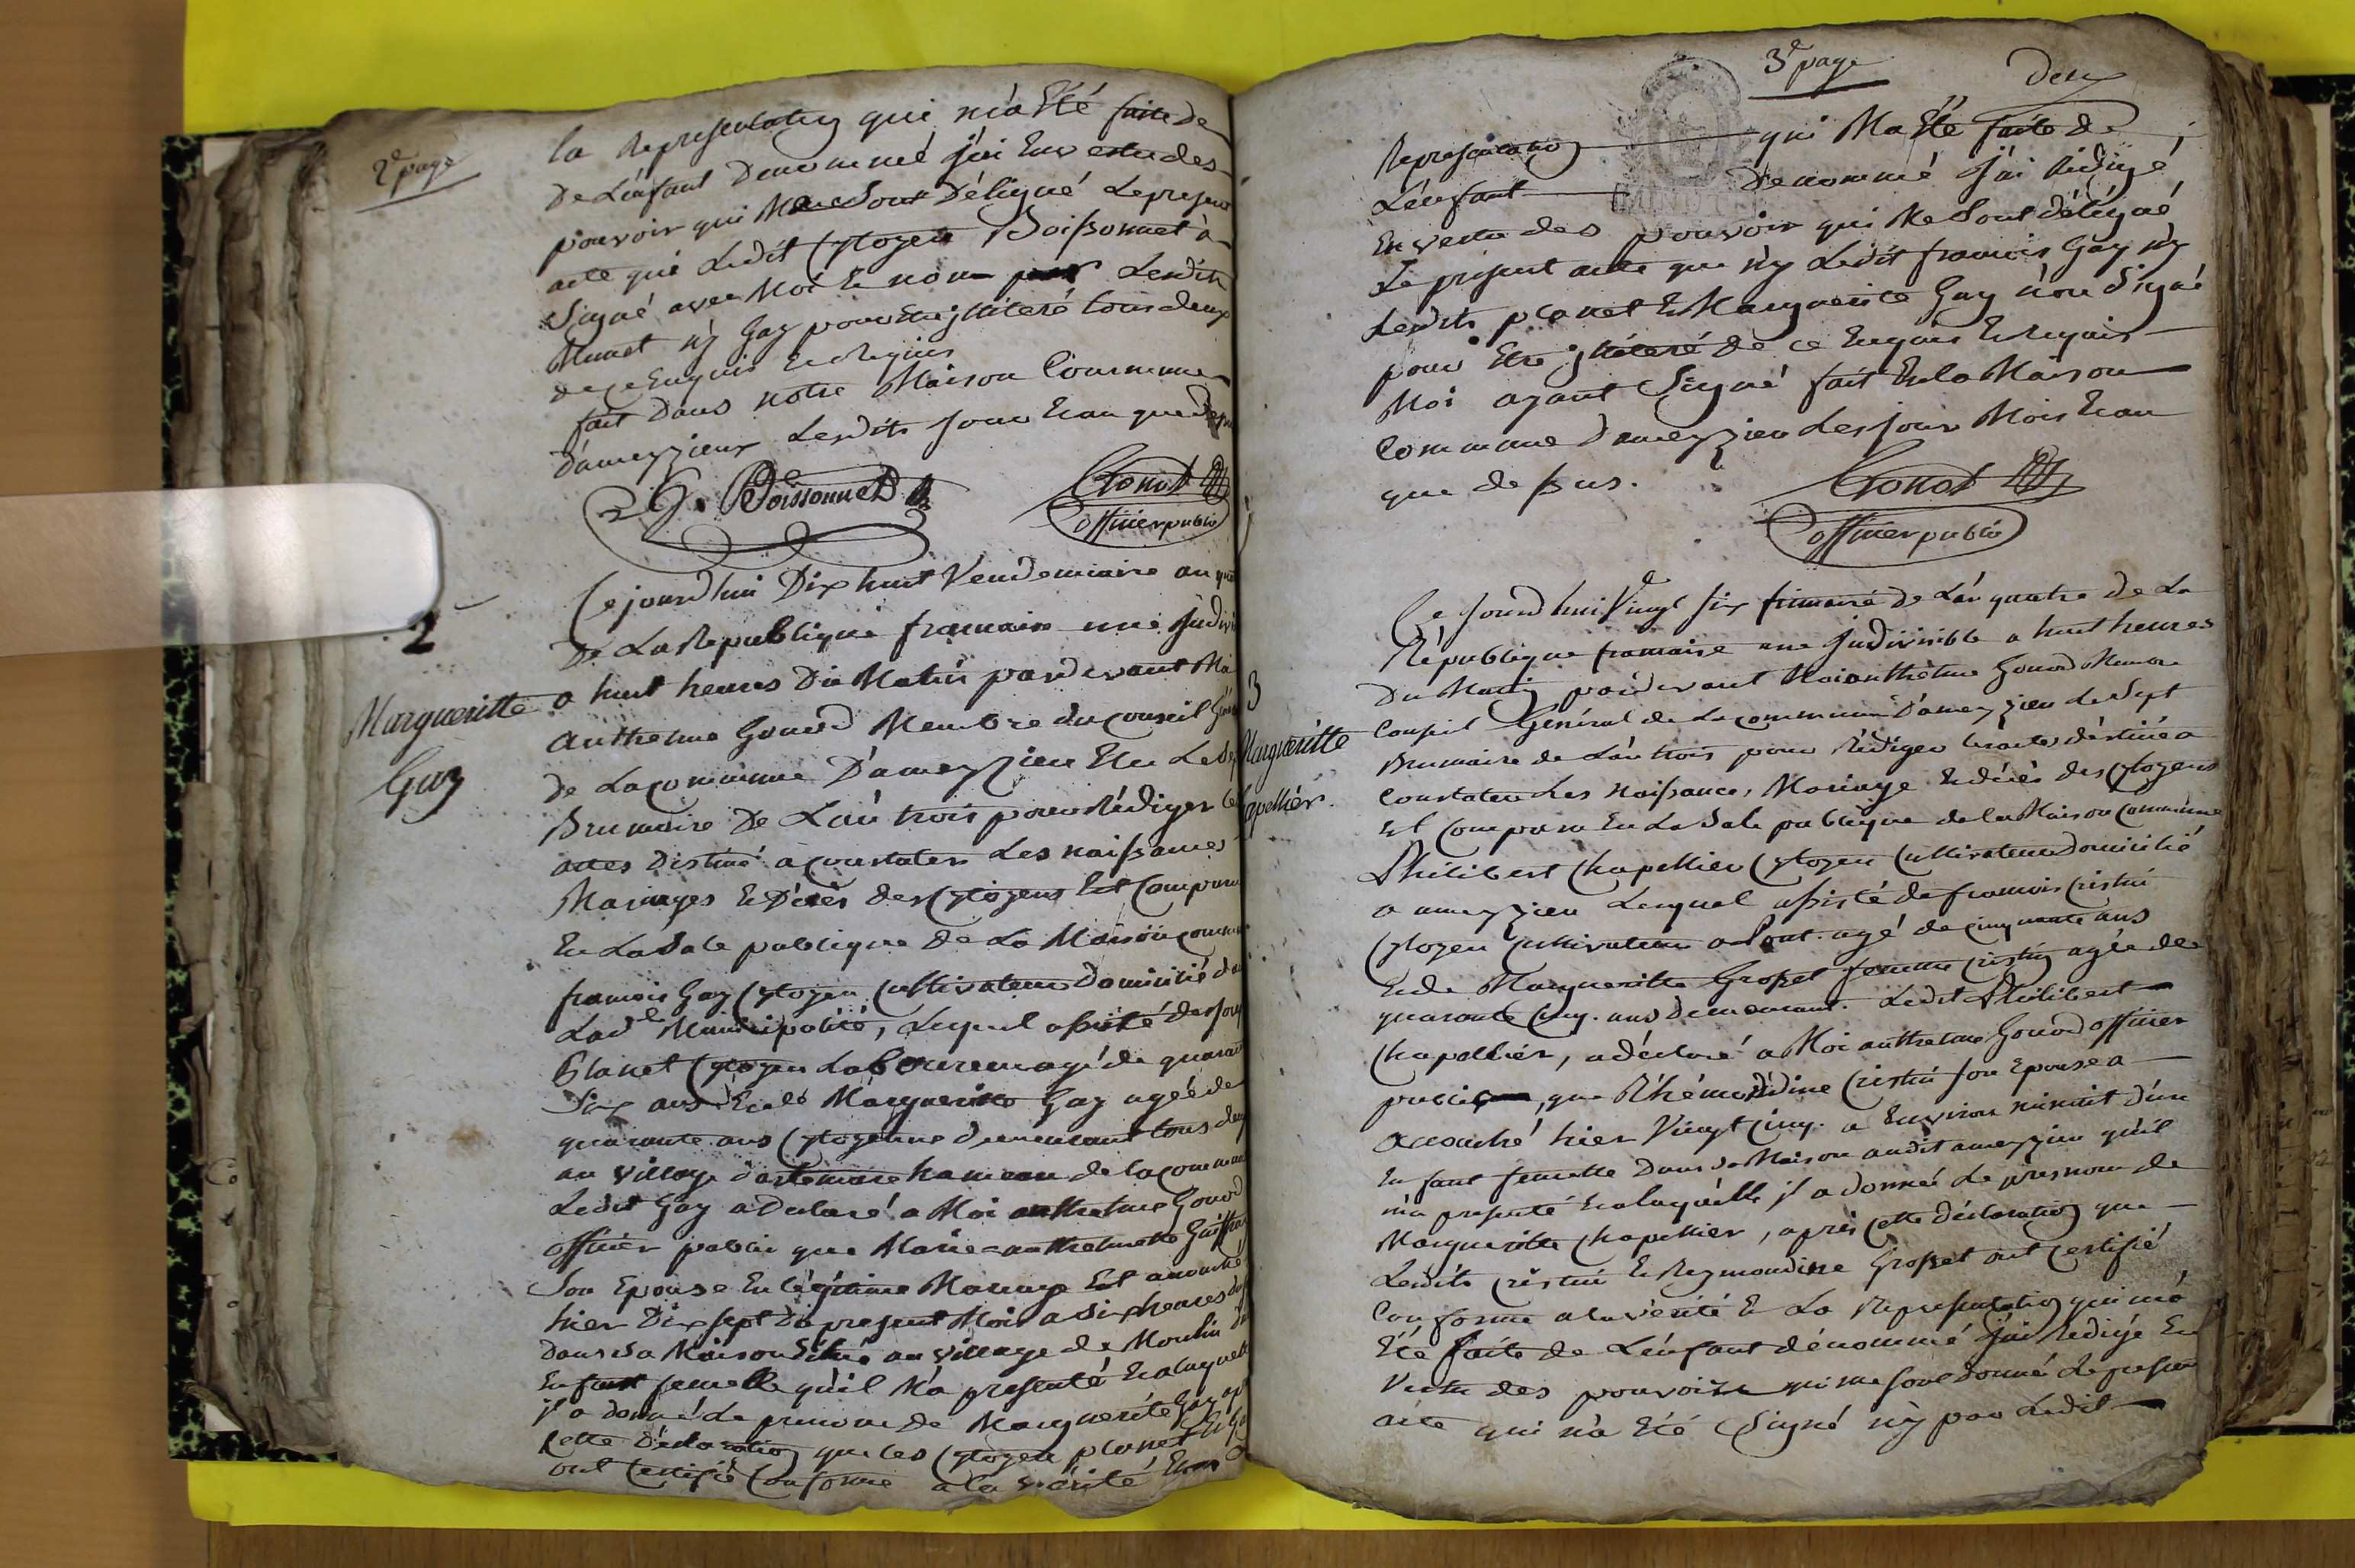 2e page
la Representation qui m'a Eté faite de
De L'enfant Denommé j'ai En vertu des
pouvoir qui Me Sont Déligué Le present
acte que Ledit Cytoyen Boissonnet à
Signé avec Moi Et non Lesdits
Munet n'y Gay pour être illiteré tous deux
de ce Enquis Et Requis
fait Dans notre Maison Commune
d'ameyzieux Lesdits Jour Et an que
J. Boissonnet
Gonod
officier public
2
Margueritte
Gay
Cejourd'hui Dix huit Vendemiaire an
De La Republique francaise une Jndivi
a huit heures Du Matin pardevant
Anthelme Gonod Membre du Conseil
de La Commune D'ameyzieu Elu Le
Brumaire De L'an trois pour Rédiger
actes Destiné à Constater Les naissances
Mariages Et Décès des Cytoyens Est Comparu
En La Sale publique De La Maison
françois Gay Cytoyen Cultivateur Domicilié
Ladte Municipalité, Lequel assisté de
Planet Cytoyen Laboureur agé de
Six ans Et de Margueritte Gay agée de
quarante ans Cytoyenne demeurant tous
au village d'artemare hameau de la
Ledit Gay a Declaré a Moi anthelme Gonod
officier public que Marie anthelmette
Son Epouse En légitime Mariage Est accouché
hier Dix sept Du present Mois a Six heures
Dans Sa Maison Située au village de Moulin
Enfant femelle qu'il M'a presenté Et a laquelle
il a donné Le prenom de Marguerite Gay
Cette Déclaration que les Cytoyen planet
ont Certifié Conforme a la vérité
3e page
deux
Representation qui M'a Eté faite de
L'enfant Denommé J'ai Rédigé
En vertu des pouvoir qui Me Sont délégué
Le present acte que n'y Ledit francois Gay n'y
Lesdits planet Et Marguerite Gay n'on Signé
pour Etre illiteré de ce Enquis Et Requis
Moi ayant Signé fait En la Maison
Commune d'ameyzieu Les jour Mois Et an
que dessus.
Gonod
officier public
3
Margueritte
Capellier.
Ce Jourd'hui Vingt six frimaire de L'an quatre de La
République francaise une Jndivisible a huit heures
Du Matin pardevant Moi anthelme Gonod Membre
Conseil Général de La commune D'ameyzieu Le Sept
Brumaire de L'an trois pour Rédiger les actes déstiné a
Constater Les Naissance, Mariage Et décès des Cytoyens
Est Comparu En La Sale publique de la Maison Commune
Philibert Chapellier Cytoyen Cultivateur domicilié
a ameyzieu Lequel assisté de francois Cristin
Cytoyen Cultivateur agé de Cinquante ans
Et de Margueritte Grosset femme Cristin agée de
quarante Cinq. ans demeurant. Ledit Philibert
Chapellier, a déclaré a Moi anthelme Gonod officier
public, que Cristin Son Epouse a
accouché hier Vingt Cinq. a Environ minuit d'un
Enfant femelle Dans Sa Maison audit ameyzieu qu'il
m'a presenté Et a laquelle il a donné Le presnom de
Margueritte Chapellier, après Cette déclaration que
Lesdits Cristin Et Reymondine Grosset ont Certifié
Conforme a la vérité Et La Representation qui m'a
Eté faite de L'enfant dénommé j'ai Redigé En
Vertu des pouvoirs qui me sont donné Le present
acte qui n'a Eté Signé n'y par Ledit